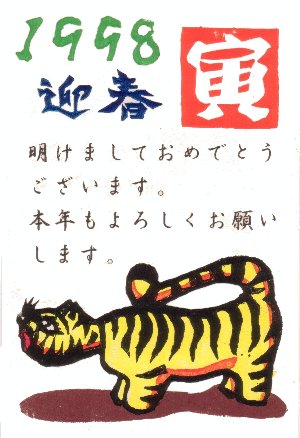 1998
迎春
寅
明けましておめでとう
ございます。
本年もよろしくお願い
します。